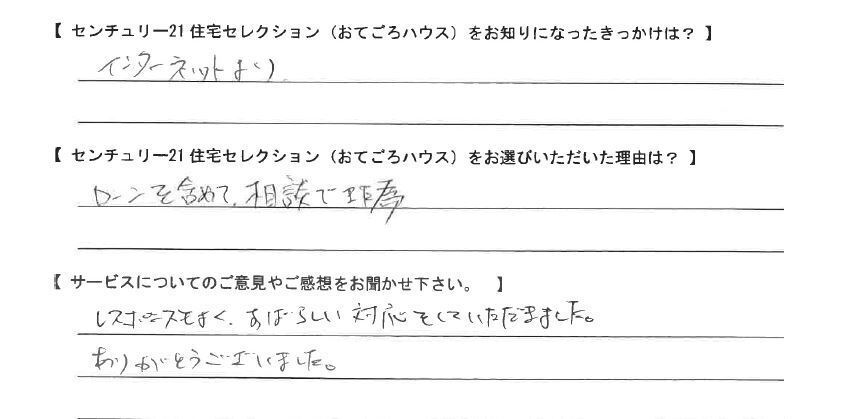 【 センチュリー21 住宅セレクション（おてごろハウス）をお知りになったきっかけは？ 】
インターネットより
【 センチュリー21 住宅セレクション（おてごろハウス）をお選びいただいた理由は？ 】
ローンを含めて、相談でき為
【 サービスについてのご意見やご感想をお聞かせ下さい。 】
レスポンスもよく、すばらしい対応をしていただきました。
ありがとうございました。